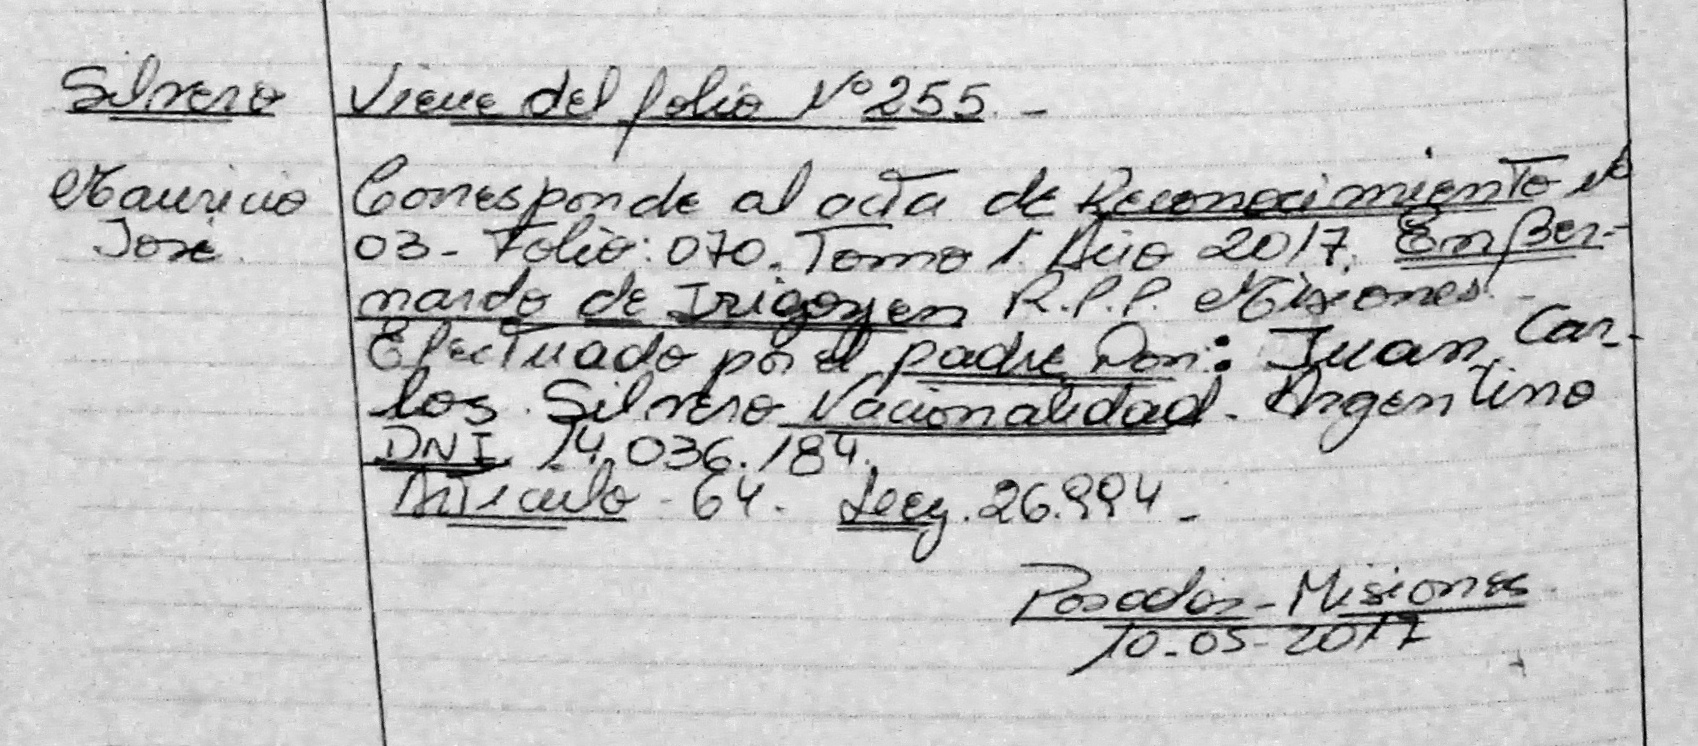 Silvero
Mauricio
José.
Viene del folio Nº 255. -
Corresponde al acta de Reconocimiento Nº
03- Folio: 070. Tomo 1. Año 2017. En Ber-
nardo de Irigoyen R.P.P. Misiones. -
Efectuado por el padre Don: Juan Car-
los. Silvero Nacionalidad. Argentino
DNI. 14.036.184.
Artículo - 64. Ley. 26.994 -
Posadas - Misiones
10-05-2017